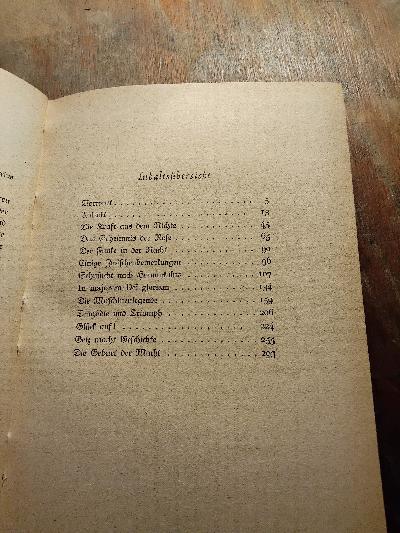 Inhaltsübersicht
Vorwort . . . 5
Auftakt . . . 13
Die Kraft aus dem Nichts . . . 45
Das Geheimnis der Rose . . . 65
Der Funke in der Nacht . . . 90
Einige Zwischenbemerkungen . . . 96
Sehnsucht nach Germanien . . . 107
In majorem Dei gloriam . . . 144
Die Maschinenlegende . . . 159
Tragödie und Triumph . . . 206
Glück auf! . . . 224
Geiz macht Geschichte . . . 255
Die Geburt der Macht . . . 293